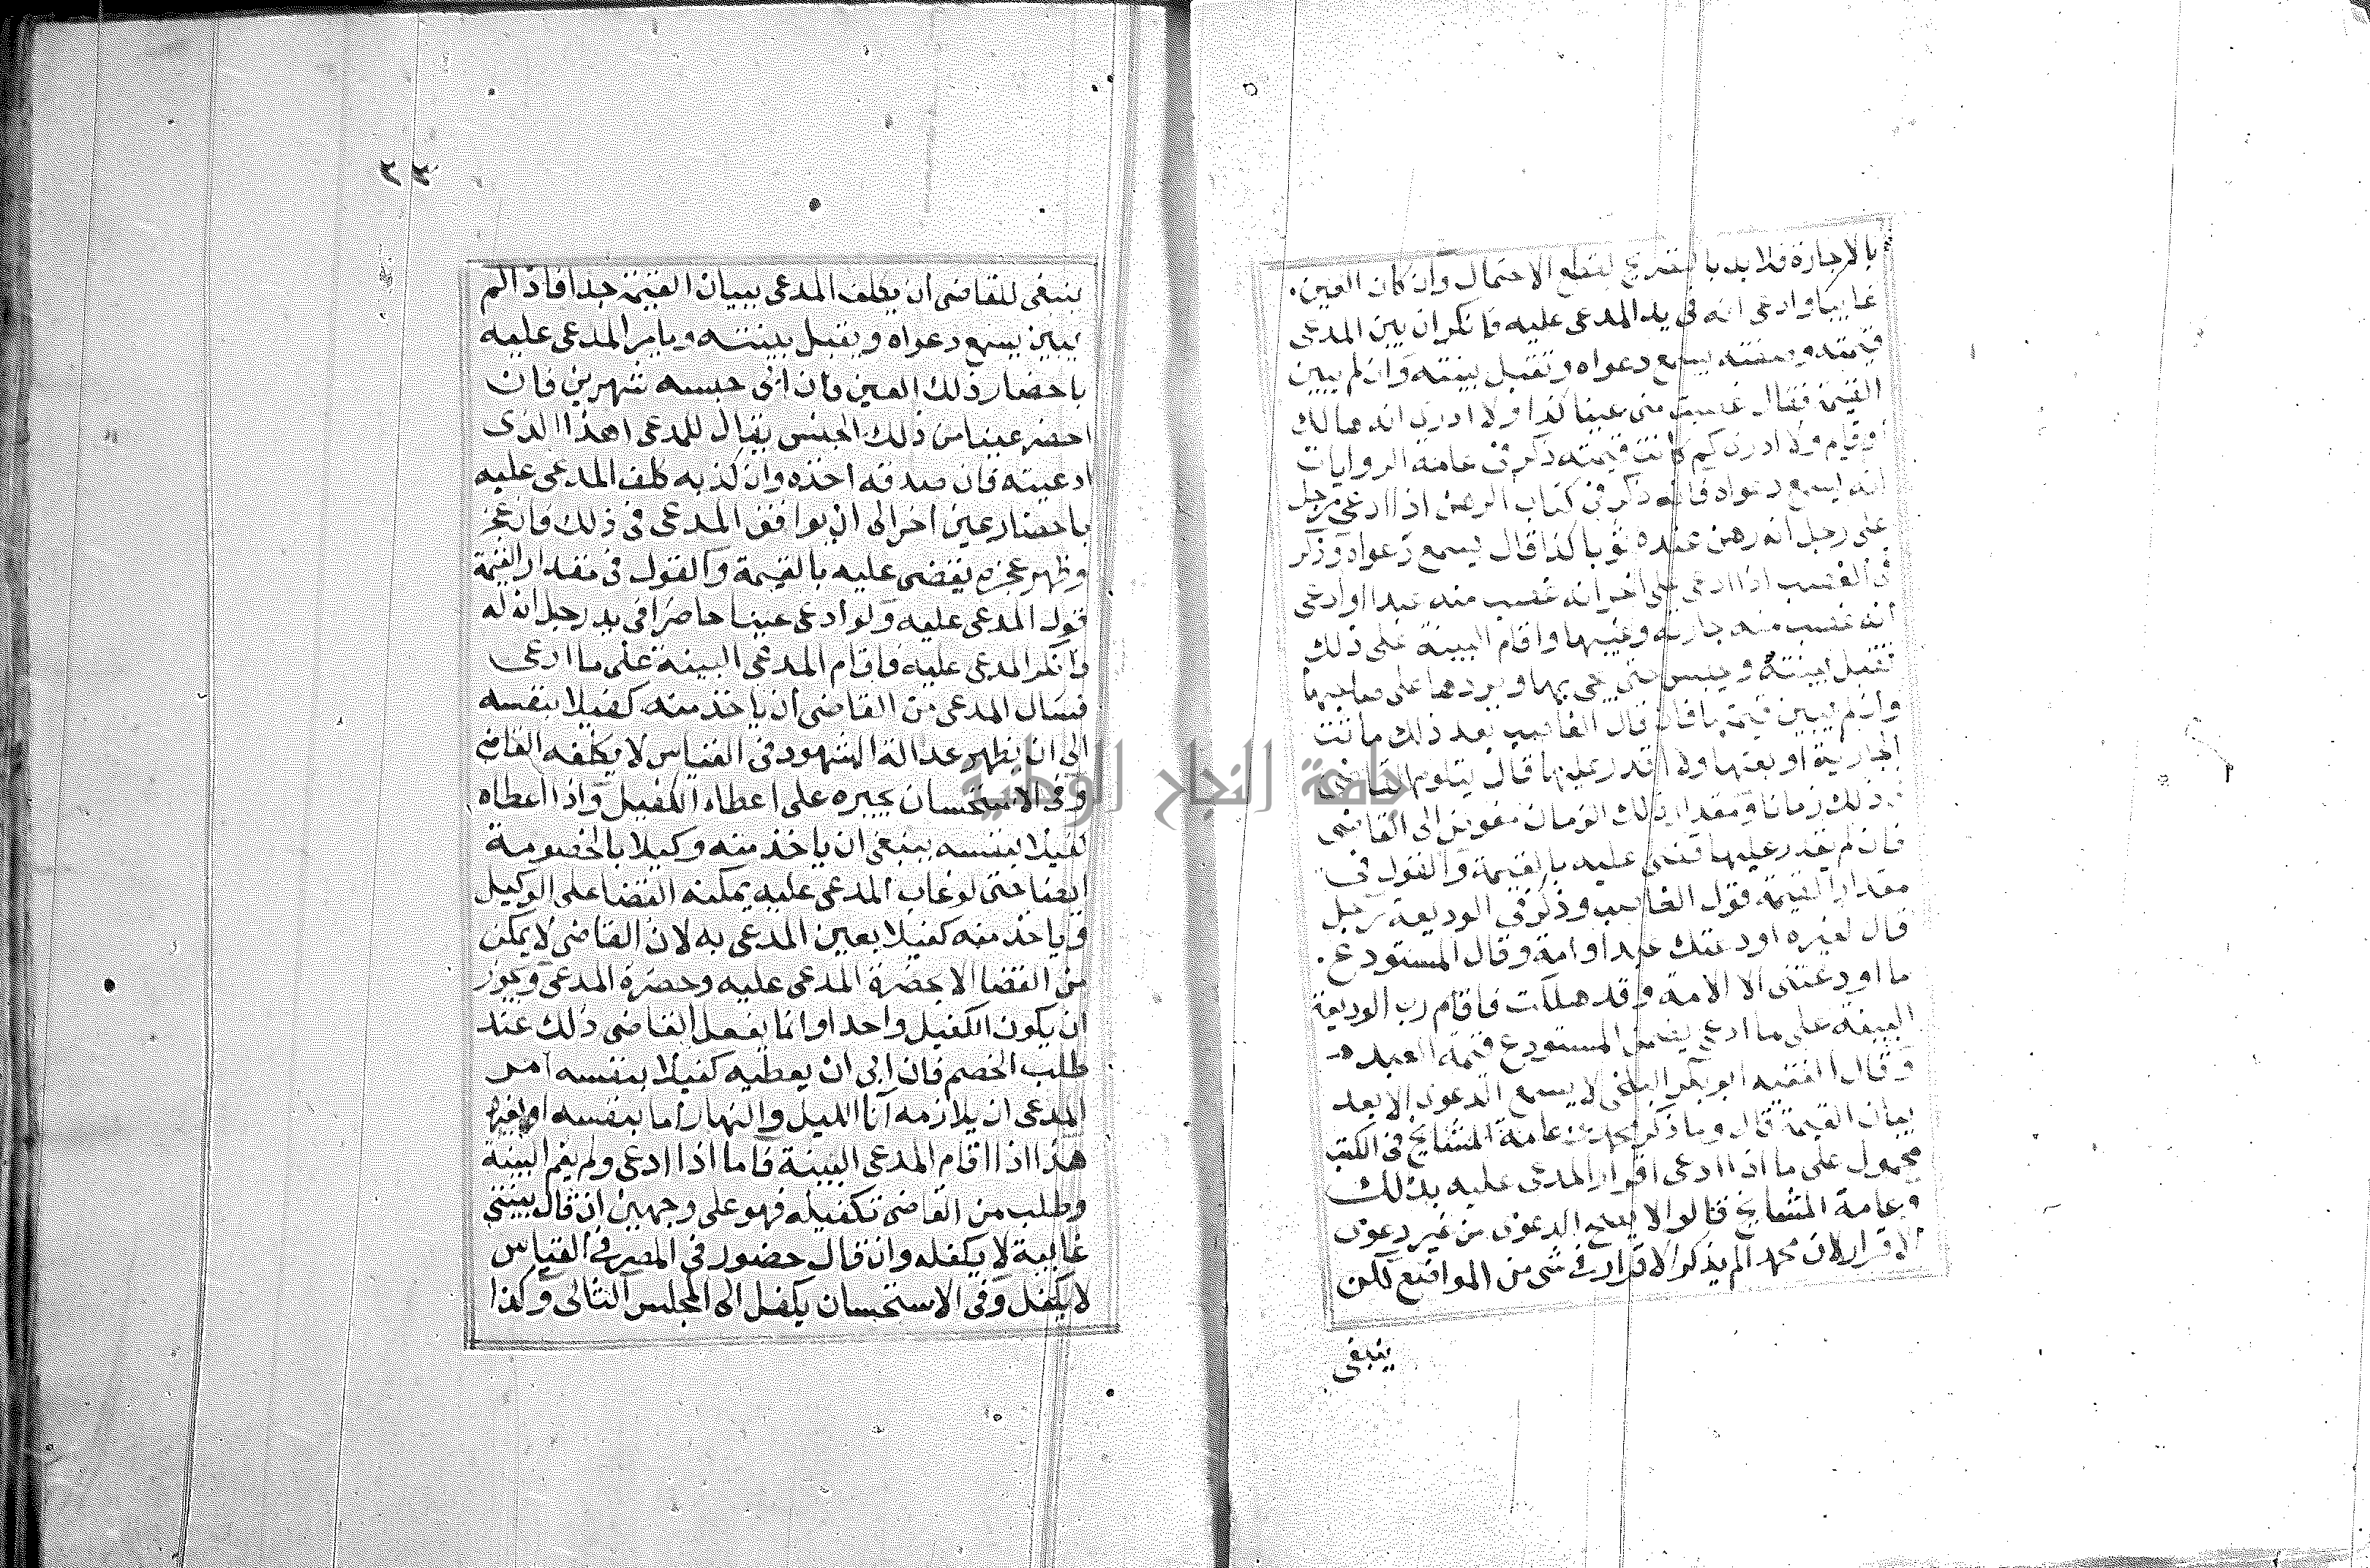 بالاجارة فلا بد بالتصريح لقطع الاحتمال وان كان العين
غايبا وادعى انه فى يد المدعى عليه فانكران بين المدعى
قيمته وصفته يسمع دعواه وتقبل بينته وان لم يبين
القيمة فقال غصبت منى عينا كذا ولا ادرى انه هالك
او قايم ولا ادرى كم كانت قيمته ذكر فى عامة الروايات
انه يسمع دعواه فانه ذكر فى كتاب الرهن اذا ادعى رجل
على رجل انه رهن عنده ثوبا كذا قال يسمع دعواه وذكر
فى الغصب اذا ادعى على اخر انه غصب منه عبدا او ادعى
انه غصب منه جارية وغيبها واقام البينة على ذلك
تقبل بينته ويحبس حتى يجى بها ويردها على صاحبها
وان لم يبين قيمتها فان قال الغاصب بعد ذلك ماتت
الجارية او بعتها ولا اقدر عليها قال يتلوم القاضى
فى ذلك زمانا ومقدار ذلك الزمان مفوض الى القاضى
فان لم يقدر عليها قضى عليه بالقيمة والقول فى
مقدار القيمة قول الغاصب وذكر فى الوديعة رجل
قال لغيره اودعتك عبدا وامة وقال المستودع
ما اودعتنى الا الامة وقد هلكت فاقام رب الوديعة
البينة على ما ادعى يضمن المستودع قيمة العبد
وقال الفقيه ابو بكر البلخى لا يسمع الدعوى الا بعد
بيان القيمة قال وما ذكر محمد عامة المشايخ فى الكتب
محمول على ما اذا ادعى اقرار المدعى عليه بذلك
وعامة المشايخ قالوا لا يصح الدعوى من غير دعوى
الاقرار لان محمدا لم يذكر الاقرار فى شى من المواضع لكن
ينبغى
٢٣
ينبغى للقاضى ان يكلف المدعى ببيان القيمة جدا فاذا لم
يبين يسمع دعواه ويقبل بينته ويامر المدعى عليه
باحضار ذلك العين فان ابى حبسه شهرين فان
احضر عينا من ذلك الجنس يقال للمدعى اهذا الذى
ادعيته فان صدقه اخذه وان كذبه كلف المدعى عليه
باحضار عين اخر الى ان يوافق المدعى فى ذلك فان عجز
وظهر عجزه يقضى عليه بالقيمة والقول فى مقدار القيمة
قول المدعى عليه ولو ادعى عينا حاضرا فى يد رجل انه له
وانكر المدعى عليه فاقام المدعى البينة على ما ادعى
فسال المدعى من القاضى ان ياخذ منه كفيلا بنفسه
الى ان يظهر عدالة الشهود فى القياس لا يكلفه القاضى
وفى الاستحسان يجبره على اعطاء الكفيل واذا اعطاه
كفيلا بنفسه ينبغى ان ياخذ منه وكيلا بالخصومة
ايضا حتى لو غاب المدعى عليه يمكنه القضا على الوكيل
وياخذ منه كفيلا بعين المدعى به لان القاضى لا يمكن
من القضا الا بحضرة المدعى عليه وحضرة المدعى ويجوز
ان يكون الكفيل واحدا وانما يفعل القاضى ذلك عند
طلب الخصم فان ابى ان يعطيه كفيلا بنفسه امر
المدعى ان يلازمه آنا الليل والنهار اما بنفسه او
هذا اذا اقام المدعى البينة فاما اذا ادعى ولم يقم البينة
وطلب من القاضى تكفيله فهو على وجهين ان قال بينتى
غايبة لا يكفله وان قال حضور فى المصر فى القياس
لا يكفل وفى الاستحسان يكفل الى المجلس الثانى وكذا
جامعة النجاح الوطنية